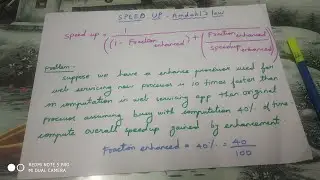 SPEED UP - Amdahl's law
speed up = 1
((1 - Fraction enhanced) + (Fraction enhanced / speedup enhanced))
Problem -
Suppose we have a enhance processor used for
web servicing new processor is 10 times faster than
on computation in web servicing app than original
processor assuming busy with computation 40% of time
compute overall speedup gained by enhancement
Fraction enhanced = 40% = 40
100
REDMI NOTE 5 PRO
MI DUAL CAMERA